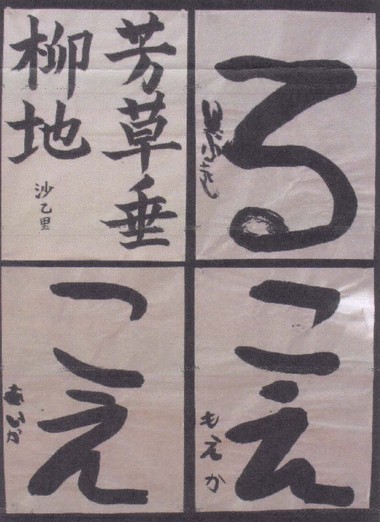 る
芳草垂
柳地
沙乙里
こえ
もえか
こえ
あいか